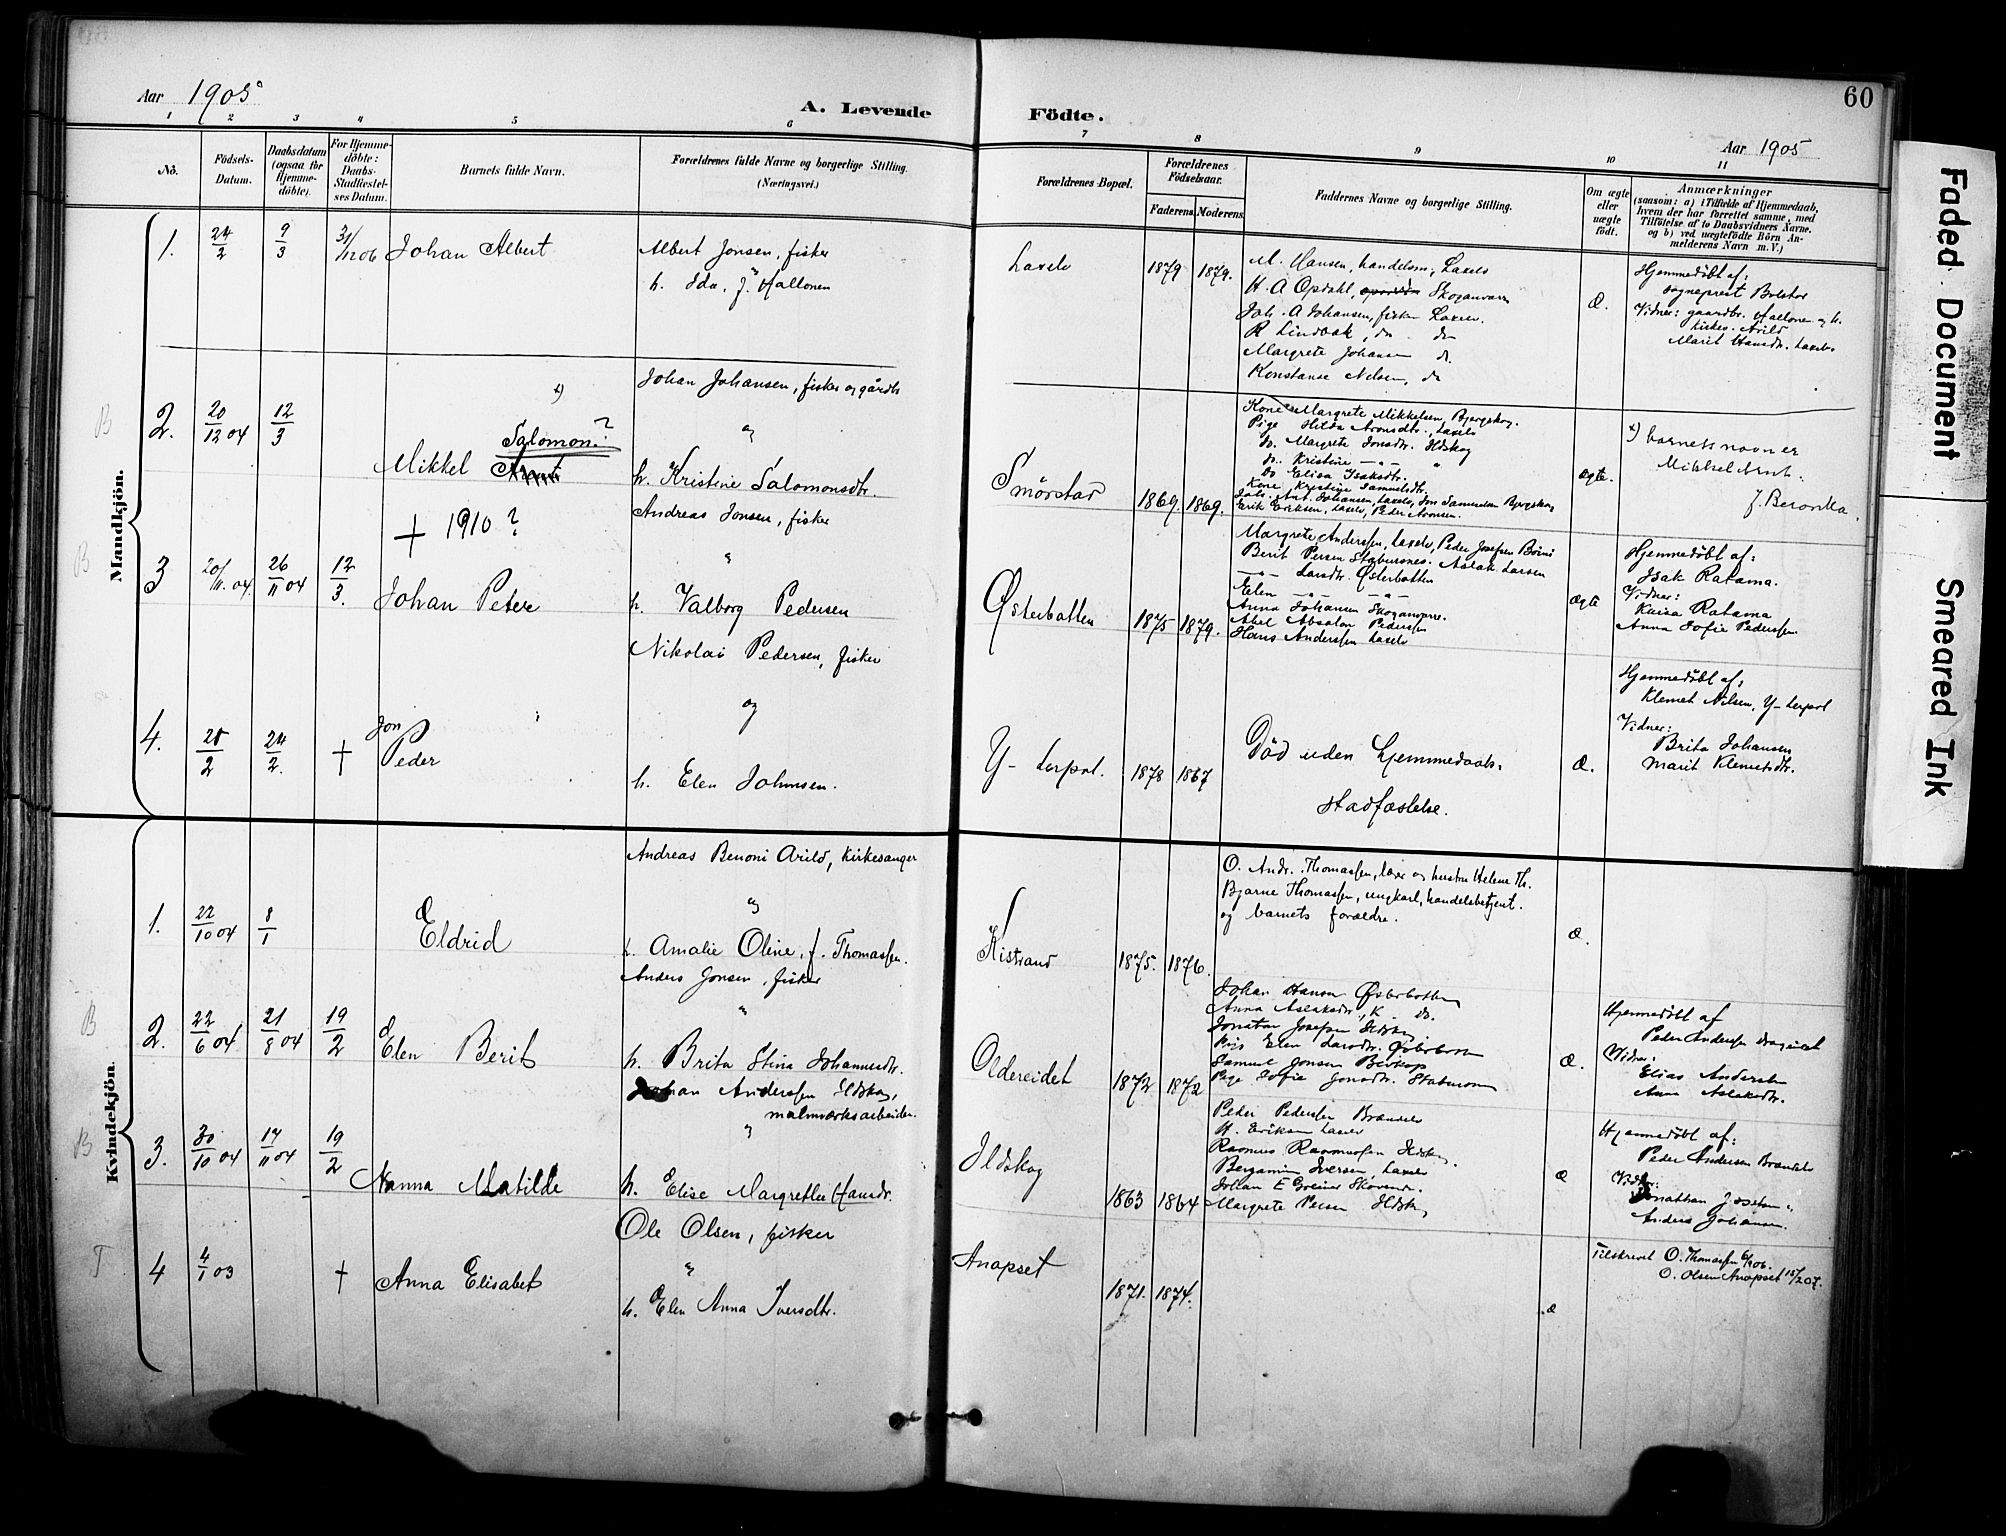 Aar 1905
A. Levende
Födte.
60
Aar 1905
1
2
3
4
5
6
7
8
9
10
11
No.
Födsels-Datum.
Daabsdatum (ogsaa for Hjemmedöbte).
For Hjemmedöbte: Daabs-Stadfæstelses Datum.
Barnets fulde Navn.
Forældrenes fulde Navne og borgerlige Stilling.
(Næringsvei.)
Forældrenes Bopæl.
Forældrenes Födselsaar.
Faderens
Moderens
Faddernes Navne og borgerlige Stilling.
Om ægte eller uægte födt.
Anmærkninger
(saasom: a) i Tilfælde af Hjemmedaab, hvem der har forrettet samme, med Tilföielse af to Daabsvidners Navne. og b) ved uægtefödte Börn Anmelderens Navn m. V.)
Mandkjön.
1.
24/2
9/3
31/12 06
Johan Albert
Albert Jonsen, fisker
h. Ida, f. Hallonen
Laxelv
1879
1879.
M. Hansen, handelsm, Laxelv
H. A Opdahl, Skoganvarre
Joh. A Johansen, fisker Laxelv.
R Lindbak, do do
Margrete Johansen do
Konstanse Nilsen, do
Æ.
Hjemmedöbt af:
sogneprest Bolstad
Vidner: gaardbr. Hallonen og h.
kirkes. Arild
Marit Hansdr. Laxelv
B
2.
20/12 04
12/3
x)
Salomon?
Mikkel Arnt
+ 1910?
Johan Johansen, fisker og gårdb
og
h. Kristine Salomonsdtr.
Smörstad
1869.
1869.
Kone Margrete Mikkelsen, Bjergskog.
Pige Hilda Aronsdtr. Laxelv
do. Margrete Jonsdtr. Ildskog
do. Kristine -"- "
Do Elisa Isaksdtr.
Kone Kristine Samuelsdtr.
Joh. Ant. Johansen, Laxelv, Jon Samuelsen Bjergskog
Erik Eriksen, Laxelv, Peder Aronsen.
Ægte.
x) barnets navn er
Mikkel Arnt.
B
3
20/11. 04
26/11 04
12/3.
Johan Peter
Andreas Jonsen, fisker
"
h. Valborg Pedersen
Østerbotten
1875
1879.
Margrete Anderssen, Laxelv, Peder Josefsen
Berit Persen Stabursnes. Aslak Larsen
-"- Larsdtr. Østerbotten
Elen -"- -"-
Anna Johansen Skoganvarre.
Abel Absalon Pederssen
Hans Anderssen Laxelv
Ægte
Hjemmedöbt af:
Isak Ratama.
Vidner:
Kaisa Ratama
Anna Sofie Pederssen.
4.
28/2
24/2.
+
Jon
Peder
Nikolai Pedersen, fisker
og
h. Elen Johnnsen.
Y- Lerpol.
1878
1867
Död uden hjemmedaabs.
stadfæstelse.
Æ.
Hjemmedöbt af:
Klemet Nilsen, Y- Lerpol
Vidner:
Brita Johansen
Marit Klemetsdtr.
Kvindekjön.
1.
22/10 04
8/1
Eldrid
Andreas Benoni Arild, kirkesanger
og
h. Amalie Oline, f. Thomassen.
Kistrand
1875.
1876.
O. Andr. Thomassen, lærer og hustru Helene Th.
Bjarne Thomassen, ungkarl, handelsbetjent.
og barnets forældre.
Æ.
B
2.
22/6 04
21/8 04
19/2
Elen Berit
Anders Jonsen, fisker
"
h. Brita Stina Johannesdtr.
Oldereidet
1872
1872
Johan Hansen Østerbotten
Anna Aslaksdtr, K. do.
Jonatan Josefsen Ildskog
Pige Elen Larsdtr. Østerbotten
Samuel Jonsen
Pige Sofie Jonsdtr.
Æ.
Hjemmedöbt af
Peder Andersen
Vidner:
Elias Andersen
Anna Aslaksdtr.
B
3.
30/10 04
17/11 04
19/2
Nanna Matilde
Johan Anderssen Ildskog,
malmværksarbeider.
"
h. Elise Margrethe Hansdr.
Ildskog
1863
1864
Peder Pedersen Brændelv
H. Eriksen Laxelv
Rasmus Rasmussen Ildskog.
Bergamin Iversen Laxelv
Johan E Greiner
Margrete Persen Ildskog
Æ
Hjemmedöbt af:
Peder Andersen Brændelv
Vidner:
Jonathan Josefsen
Anders Johansen.
T
4
4/1 03
+
Anna Elisabet
Ole Olsen, fisker
"
h. Elen Anna Iversdtr.
Anapset
1871.
1874.
Æ
Tilskrevet O. Thomassen 6/9 06.
O. Olsen Anopset 15/2 07.
Faded Document
Smeared Ink